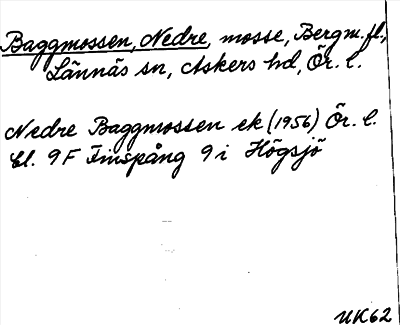 Baggmossen, Nedre, mosse, Bergm.fl.,
Lännäs sn, Askers hd, Ör. l.
Nedre Baggmossen ek (1956) Ör. l.
bl. 9F Finspång 9i Högsjö
UK62